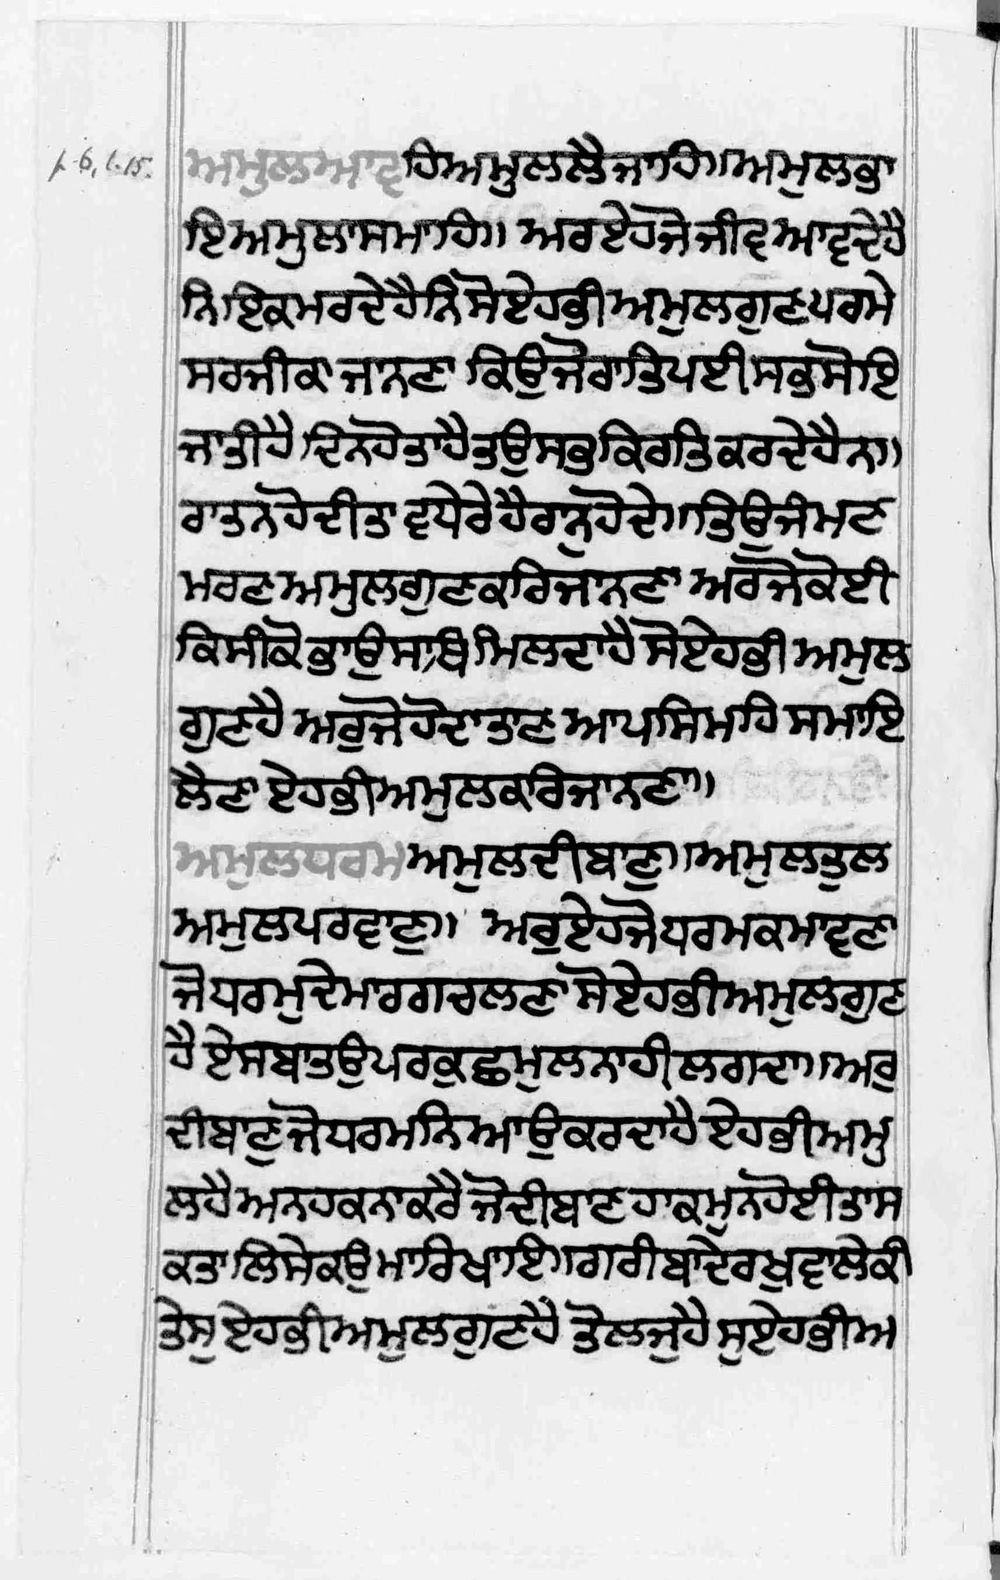 1-6, 1.15.
ਅਮੁਲਆਵਹਿਅਮੁਲਲੈਜਾਹਿ॥ਅਮੁਲਭਾ
ਇਅਮੁਲਾਸਮਾਹਿ॥ ਅਰਏਹਜੋਜੀਵਆਵਦੇਹੈ
ਨਿਇਕਮਰਦੇਹੈਨਿਸੋਏਹਭੀਅਮੁਲਗੁਣਪਰਮੇ
ਸਰਜੀਕਾਜਾਨਣਾ ਕਿਉਜੋਰਾਤਿਪਈਸਭੁਸੋਇ
ਜਾਤੀਹੈ।ਦਿਨਹੋਤਾਹੈਤਉਸਭੁਕਿਰਤਿਕਰਦੇਹੈਨਾ।
ਰਾਤਨਹੋਦੀਤਾਵਧੇਰੇਹੈਰਾਨੁਹੋਦੇ॥ਤਿਉਜੰਮਣ
ਮਰਣਅਮੁਲਗੁਣਕਰਿਜਾਨਣਾ ਅਰਜੋਕੋਈ
ਕਿਸੀਕੋਭਾਉਸਾਥਿਮਿਲਦਾਹੈਸੋਏਹਭੀਅਮੁਲ
ਗੁਣਹੈ ਅਰੁਜੋਹੋਦਾਤਾਣਆਪਸਿਮਹਿਸਮਾਇ
ਲੈਣਾ ਏਹਭੀਅਮੁਲਕਰਿਜਾਨਣਾ॥
ਅਮੁਲਧਰਮਅਮੁਲਦੀਬਾਣੁ॥ਅਮੁਲਤੁਲ
ਅਮੁਲਪਰਵਾਣੁ॥ ਅਰੁਏਹਜੋਧਰਮਕਮਾਵਣਾ
ਜੋਧਰਮੁਦੇਮਾਰਗਚਲਣਾਸੋਏਹਭੀਅਮੁਲਗੁਣ
ਹੈਏਸਬਾਤਉਪਰਕੁਛਮੁਲਨਾਹੀਲਗਦਾ॥ਅਰੁ
ਦੀਬਾਣੁਜੋਧਰਮਨਿਆਉਕਰਦਾਹੈਏਹਭੀਅਮੁ
ਲਹੈਅਨਹਕਨਾਕਰੈਜੋਦੀਬਾਣਹਾਕਮੁਨਹੋਈਤਾਸ
ਕਤਾਲਿਸੇਕਉਮਾਰਿਖਾਇ॥ਗਰੀਬਾਦੇਰਖੁਵਾਲੇਕੀ
ਤੇਸੁਏਹਭੀਅਮੁਲਗੁਣਹੈ ਤੋਲਜੁਹੈਸੁਏਹਭੀਅ